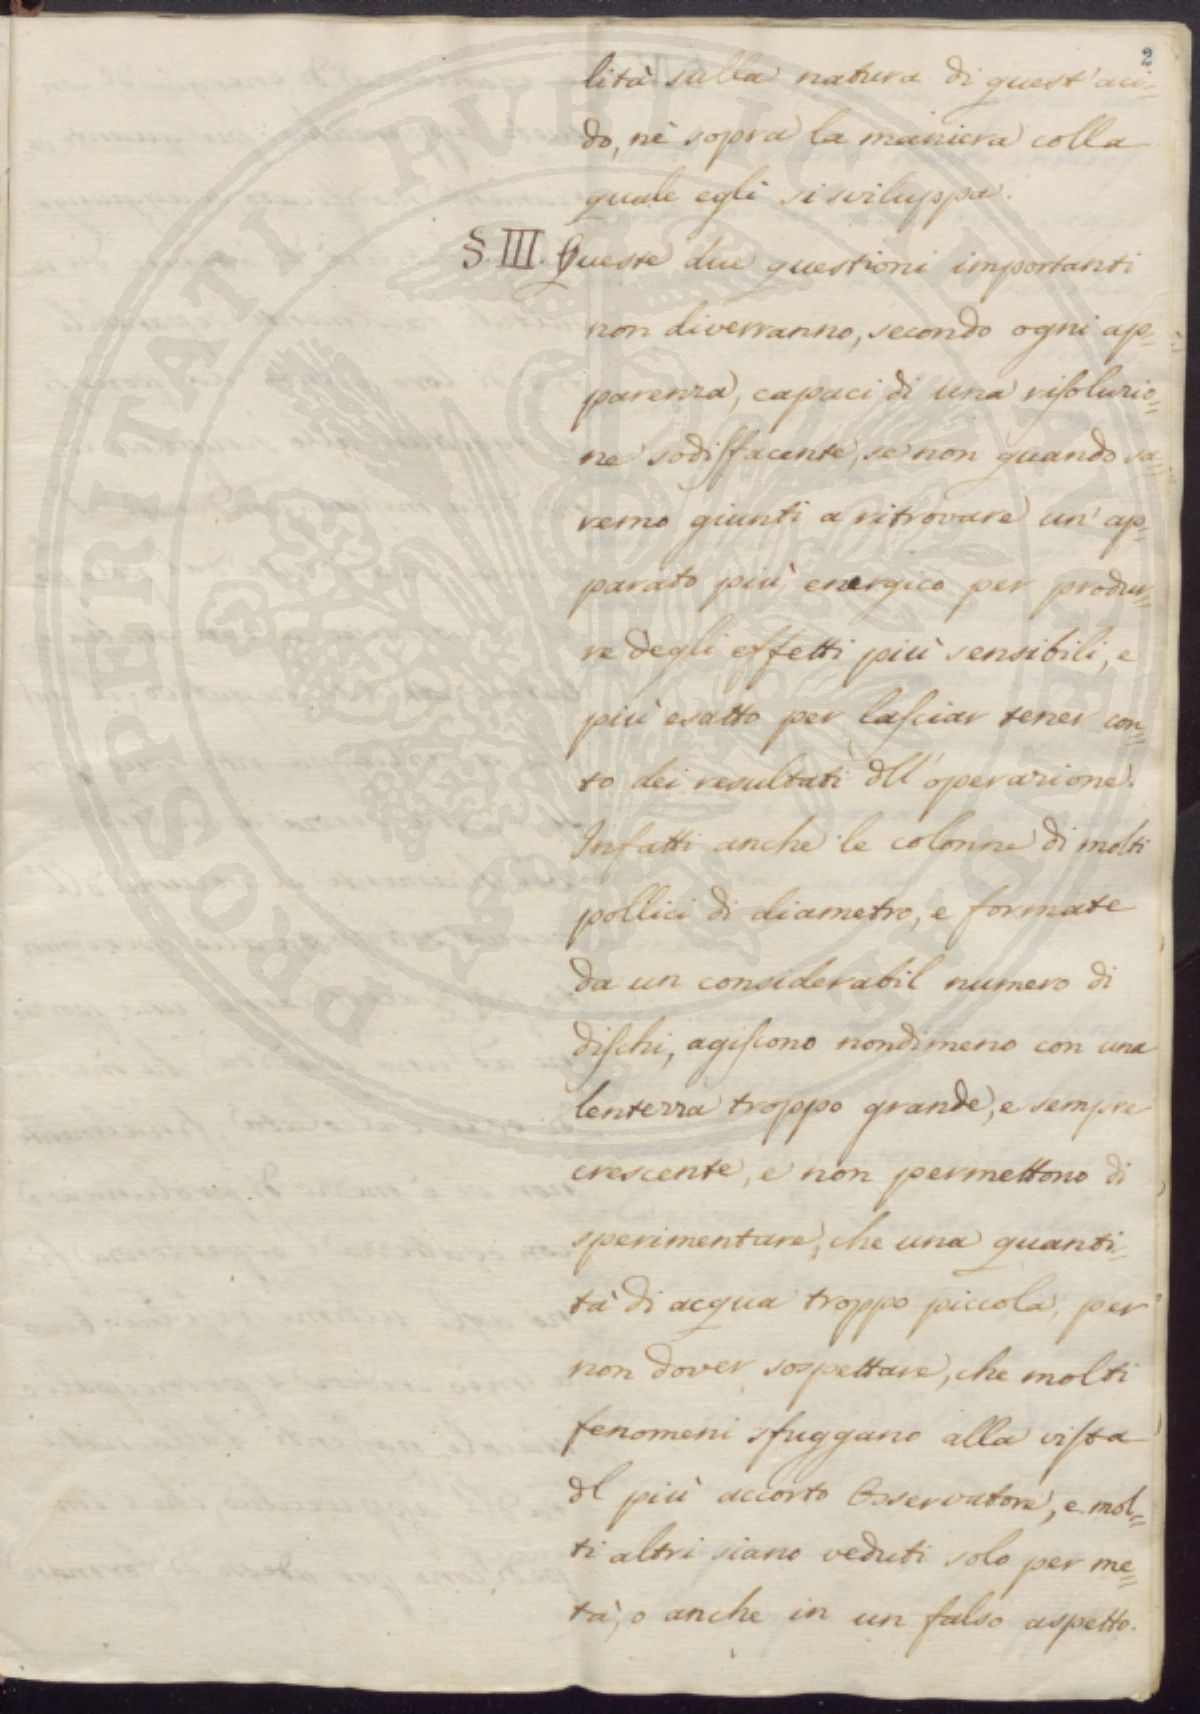 2
lità sulla natura di quest'aci=
do, nè sopra la maniera colla
quale egli si sviluppa.
§. III. Queste due questioni importanti
non diverranno, secondo ogni ap=
parenza, capaci di una risoluzio=
ne sodisfacente, se non quando sa=
remo giunti a ritrovare un'ap=
parato più energico per produr=
re degli effetti più sensibili, e
più esatto per lasciar tener con=
to dei resultati dll'operazione.
Infatti anche le colonne di molti
pollici di diametro, e formate
da un considerabil numero di
dischi, agiscono nondimeno con una
lentezza troppo grande, e sempre
crescente, e non permettono di
sperimentare, che una quanti=
tà di acqua troppo piccola, per
non dover sospettare, che molti
fenomeni sfuggano alla vista
dl più accorto Osservatore, e mol=
ti altri siano veduti solo per me=
tà, o anche in un falso aspetto.
PROSPERITATI PUBLICAE AUGENDAE